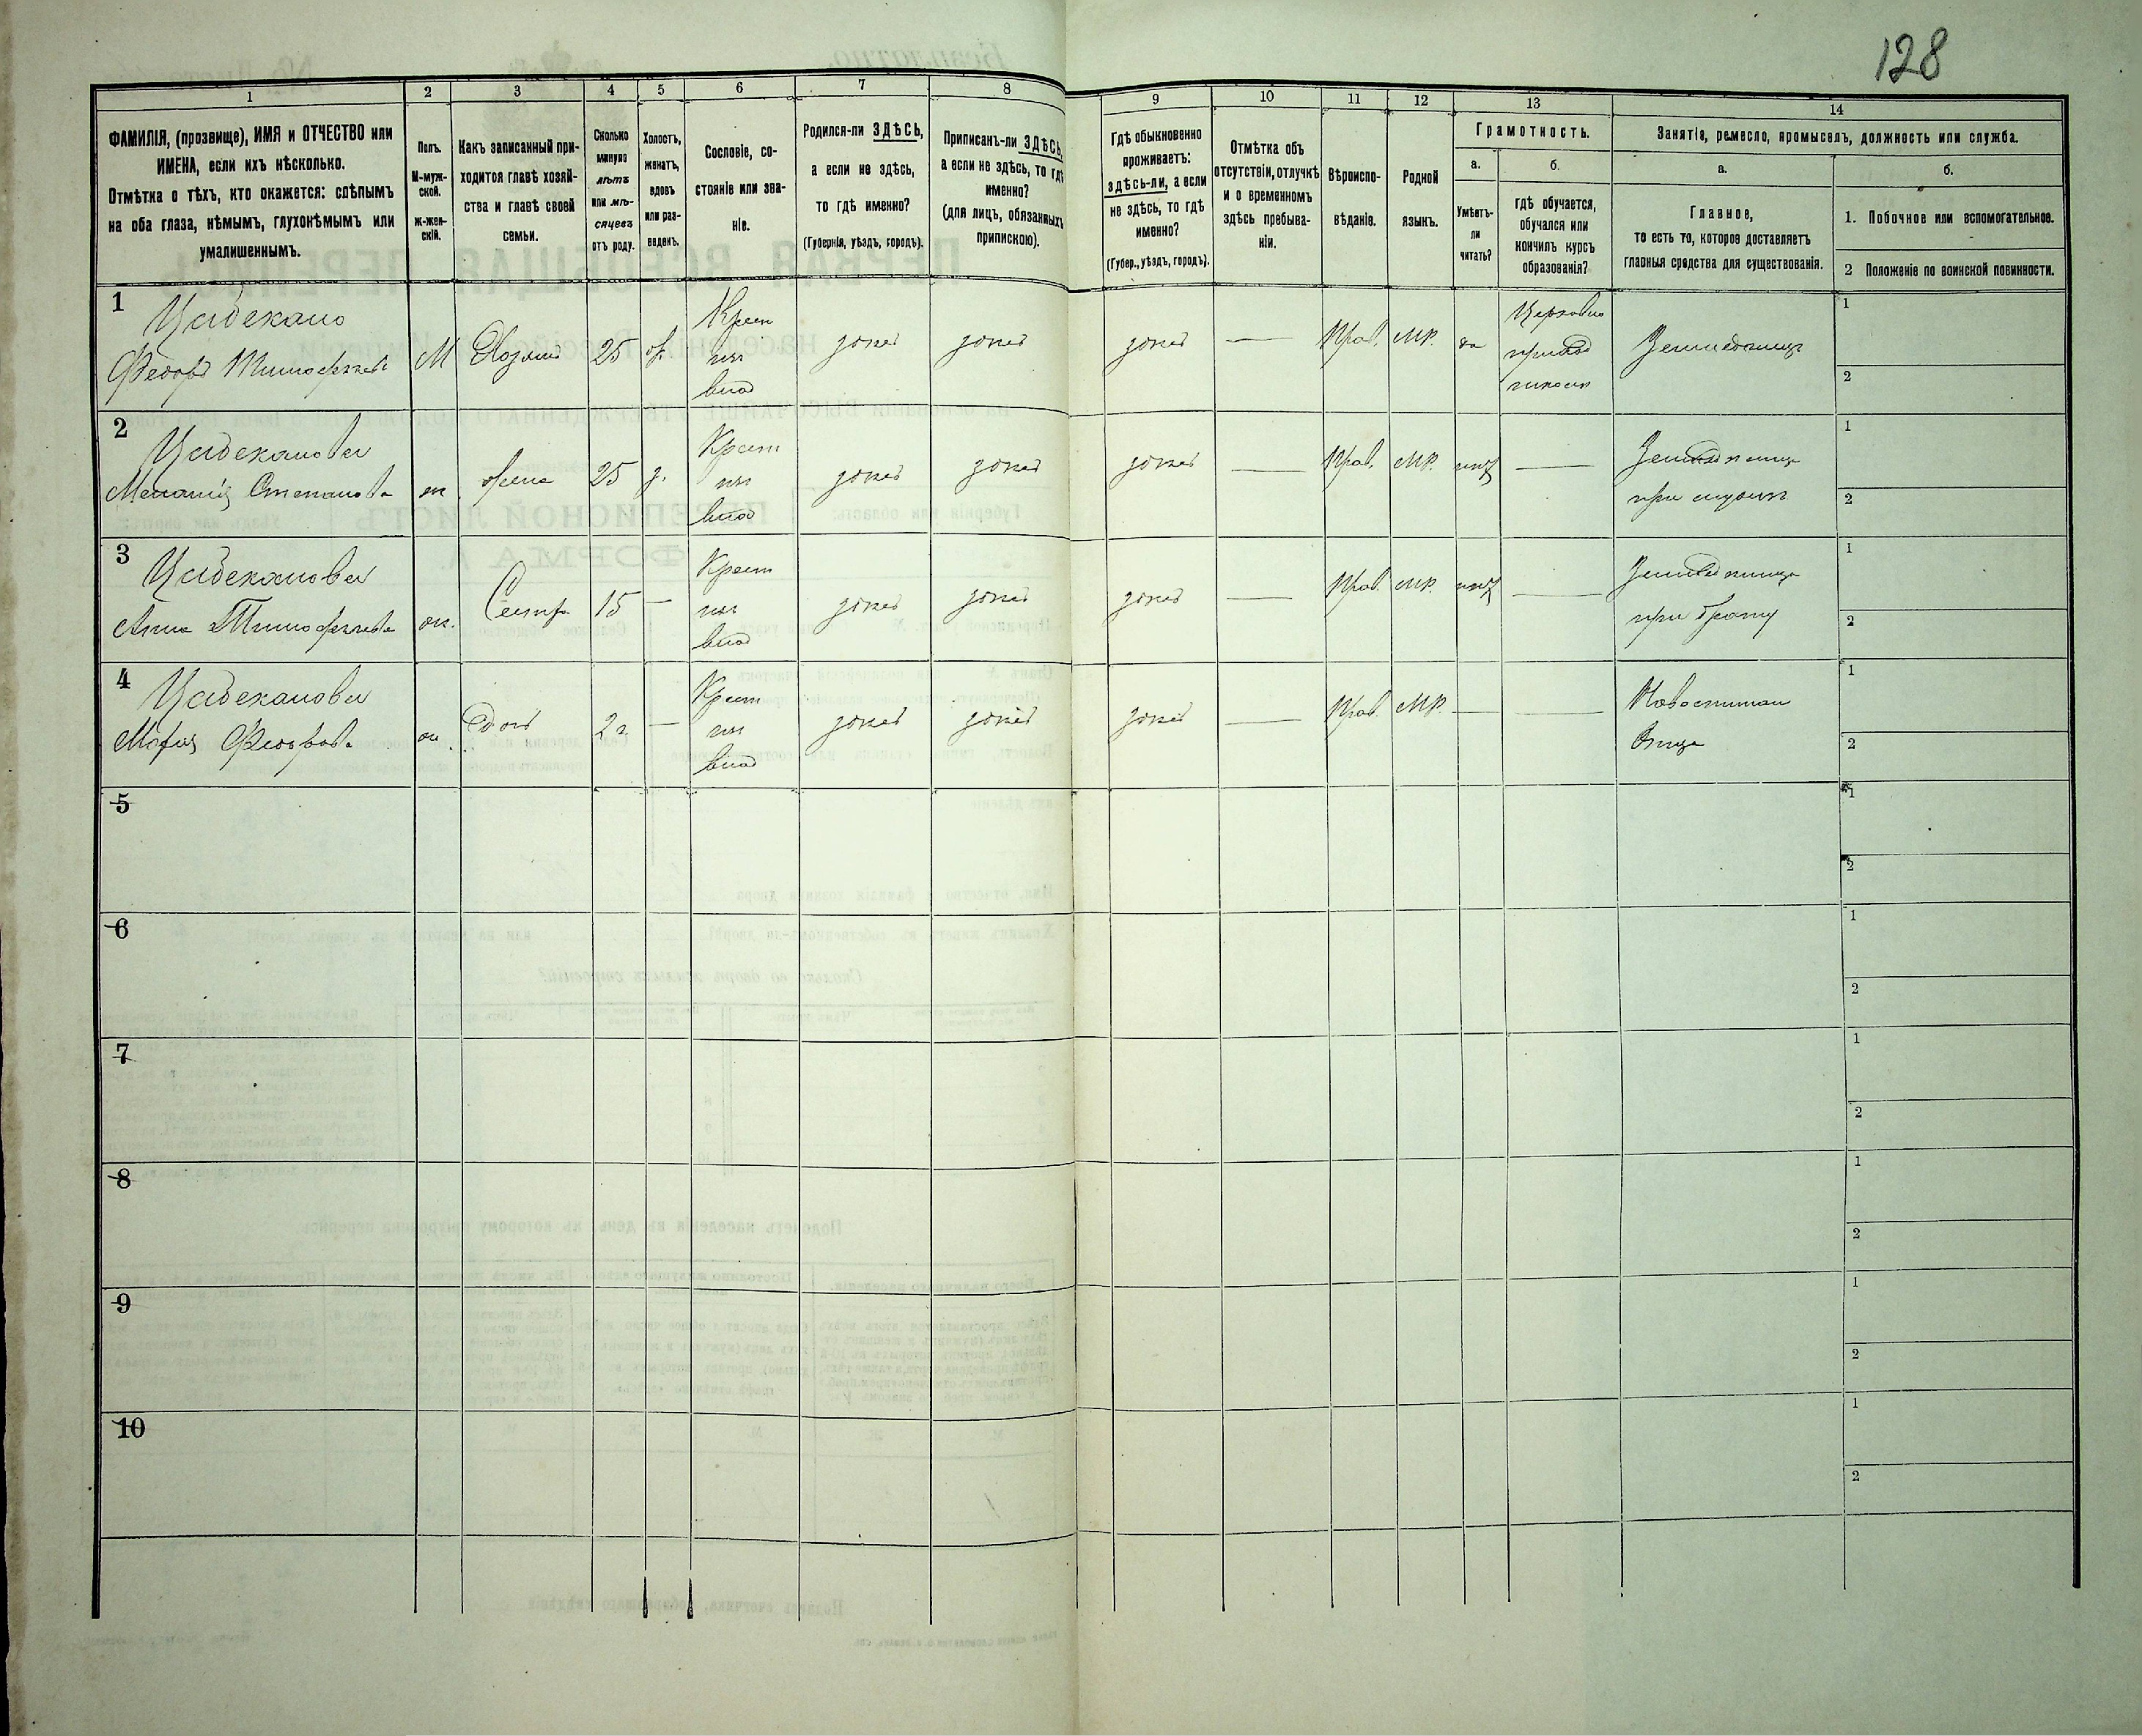 128
1
2
3
4
5
6
7
8
9
10
11
12
13
14
ФАМИЛІЯ, (прозвище), ИМЯ и ОТЧЕСТВО или
ИМЕНА, если ихъ нѣсколько.
Отмѣтка о тѣхъ, кто окажется: слѣпымъ
на оба глаза, нѣмымъ, глухонѣмымъ или
умалишеннымъ.
Полъ.
М-муж-
ской.
Ж-жен-
скій.
Какъ записанный при-
ходится главѣ хозяй-
ства и главѣ своей
семьи.
Сколько
минуло
лѣтъ
или мѣ-
сяцевъ
отъ роду.
Холостъ,
женатъ,
вдовъ
или раз-
веденъ.
Сословіе, со-
стояніе или зва-
ніе.
Родился-ли ЗДѢСЬ,
а если не здѣсь,
то гдѣ именно?
(Губернія, уѣздъ, городъ).
Приписанъ-ли ЗДѢСЬ,
а если не здѣсь, то гдѣ
именно?
(для лицъ, обязанныхъ
припискою).
Гдѣ обыкновенно
проживаетъ:
здѣсь-ли, а если
не здѣсь, то гдѣ
именно?
(Губер., уѣздъ, городъ).
Отмѣтка объ
отсутствіи, отлучкѣ
и о временномъ
здѣсь пребыва-
ніи.
Вѣроиспо-
вѣданіе.
Родной
языкъ.
Грамотность.
а.
Умѣетъ-
ли
читать?
б.
гдѣ обучается,
обучался или
кончилъ курсъ
образованія?
Занятіе, ремесло, промыселъ, должность или служба.
а.
Главное,
то есть то, которое доставляетъ
главныя средства для существованія.
б.
1. Побочное или вспомогательное.
2 Положеніе по воинской повинности.
1
Федоръ Тимофеевъ
М
Хозяинъ
25
ж.
Крест
влад
здѣсь
здѣсь
здѣсь
Прав.
МР.
да
1
2
2
Меланія Степанова
ж
жена
25
з.
Крест
влад
здѣсь
здѣсь
здѣсь
Прав.
МР.
нѣтъ
при мужѣ
1
2
3
Анна Тимофеева
ж.
Сестра
15
Крест
влад
здѣсь
здѣсь
здѣсь
Прав.
МР.
нѣтъ
при братѣ
1
2
4
Марія Федорова
ж.
Дочь
2 г.
Крест
влад
здѣсь
здѣсь
здѣсь
Прав.
МР.
1
2
5
1
2
6
1
2
7
1
2
8
1
2
9
1
2
10
1
2